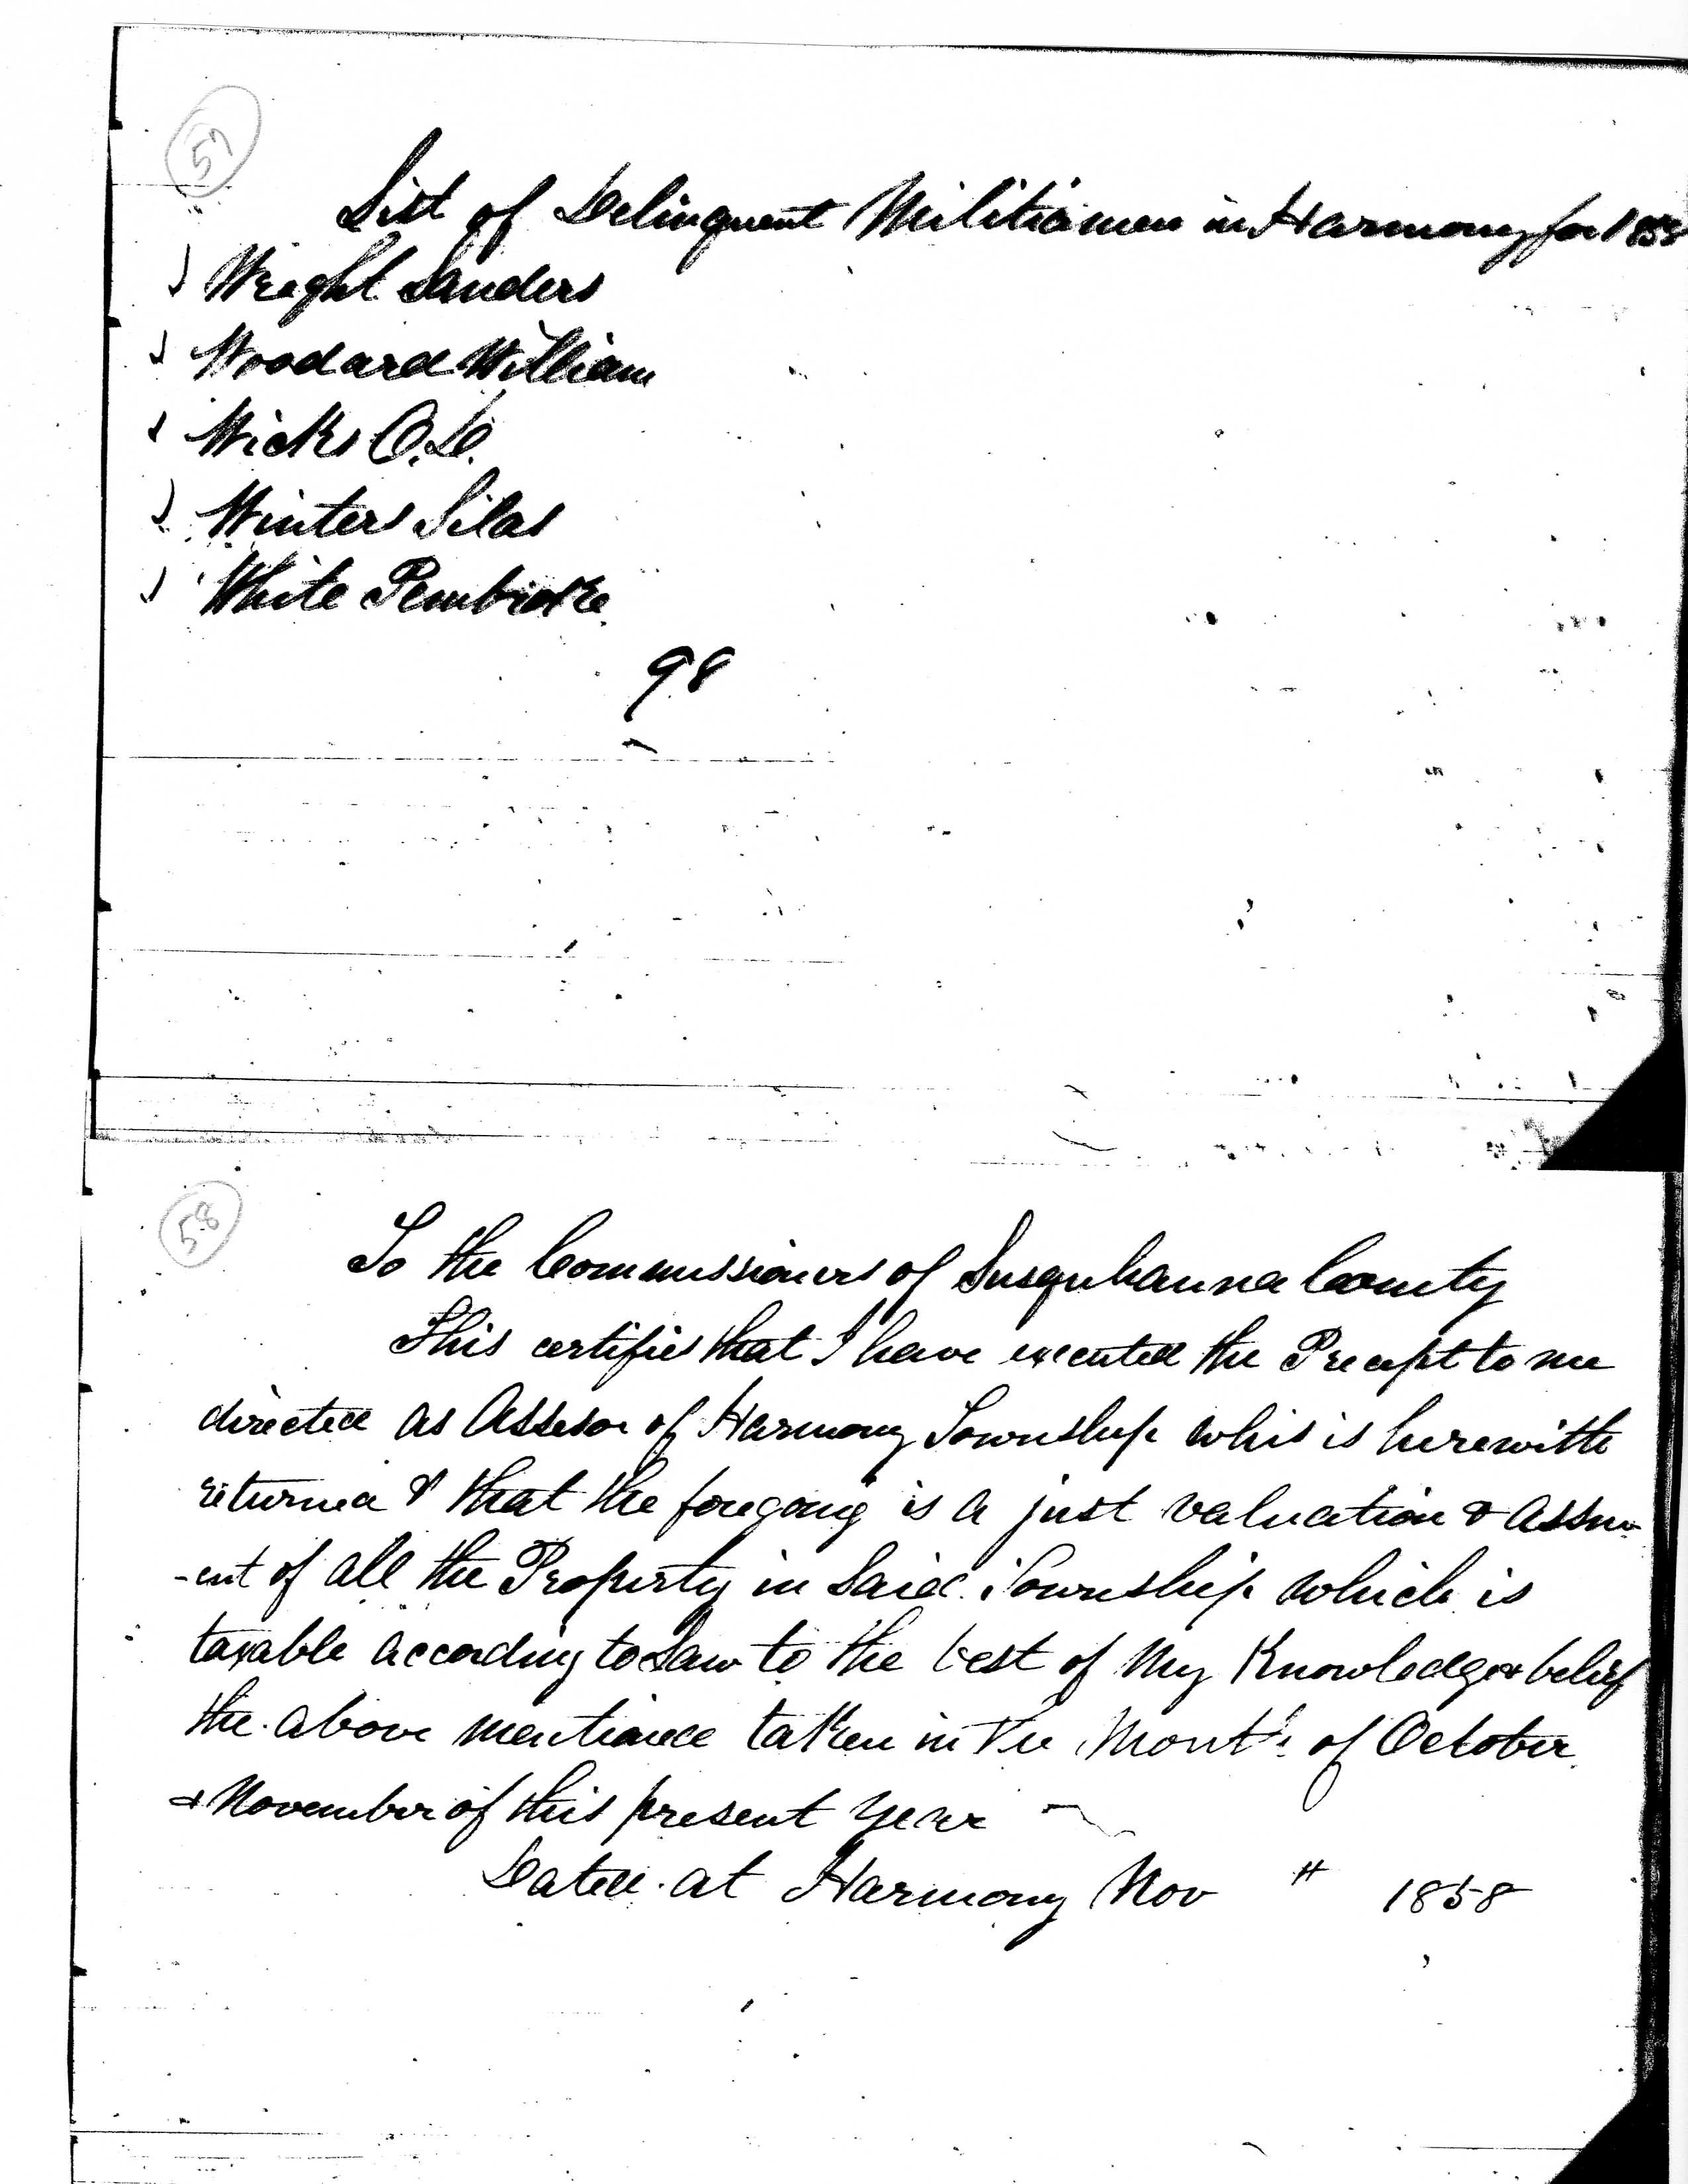 57
List of Delinquent Militiamen in Harmony for 1858
Wright Sanders
Woodard William
Wicks O. D.
Winters Silas
White Pembroke
98
58
To the Commissioners of Susquhanna County
This certifies that I have executed the Precept to me
directed as Assesor of Harmony Township whis is herewith
returned & that the foregoing is a just valuation & Assm
-ent of all the Property in Said Township which is
taxable according to Law to the best of My Knowledge & belief
the above mentioned taken in the Month of October
& November of this present year
Dated at Harmony Nov " 1858